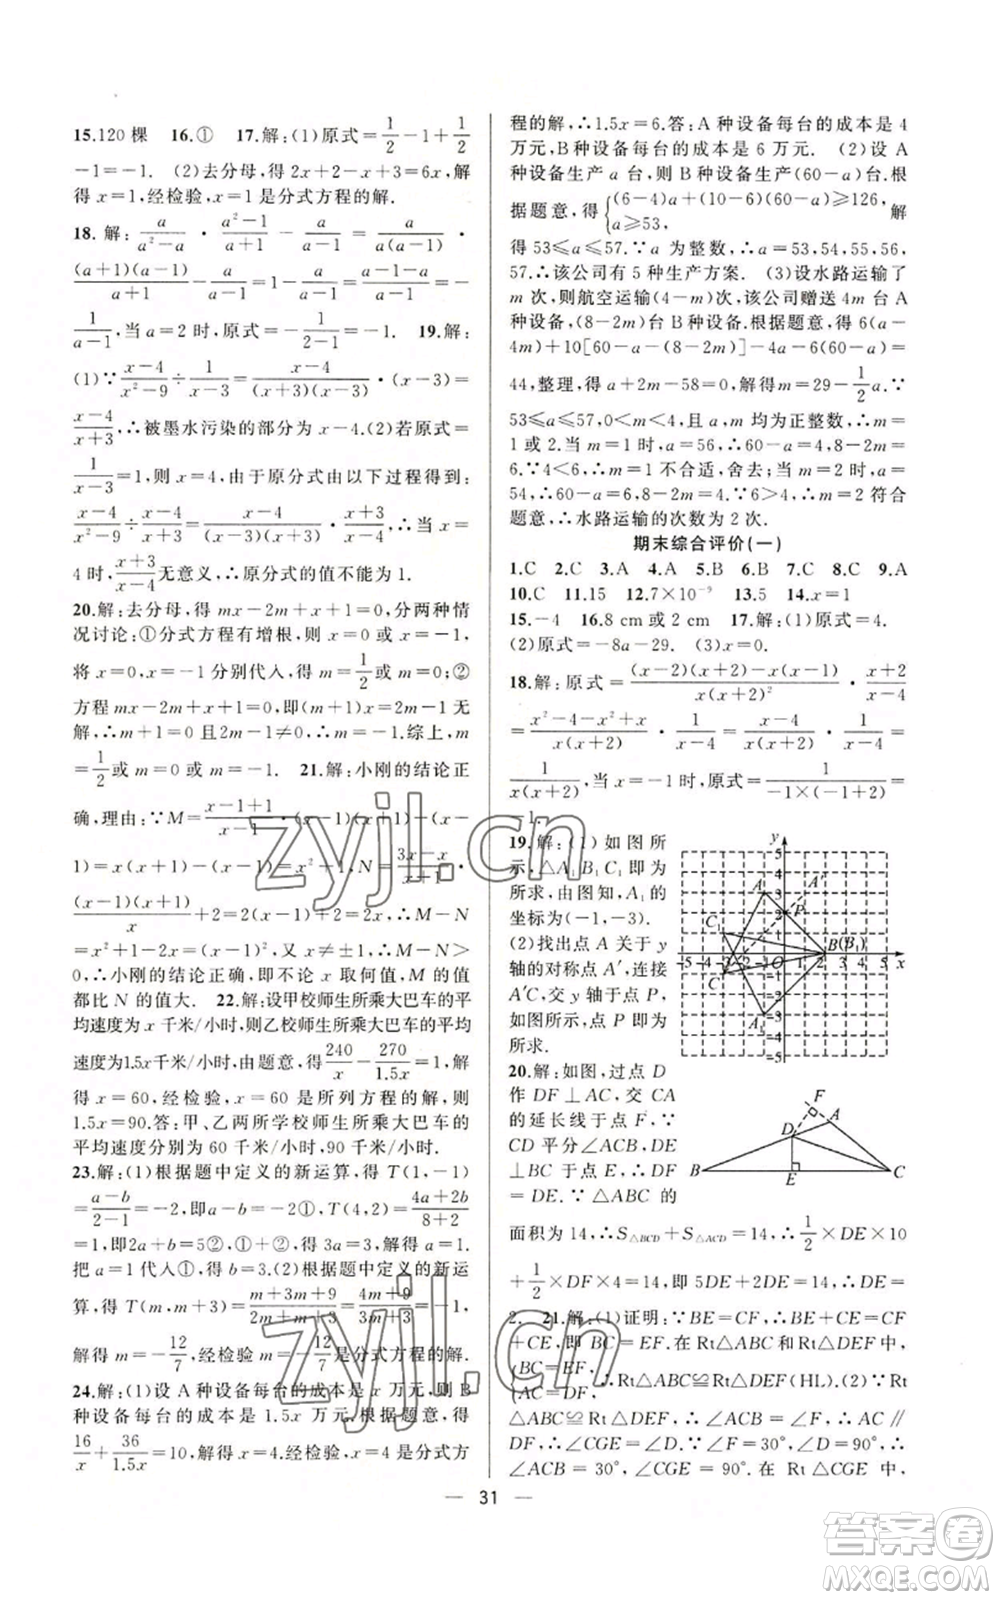 15.120 棵　16.①　17.解:(1)原式=1/2-1+1/2
-1=-1.　(2)去分母,得 2x+2-x+3=6x,解
得 x=1,经检验,x=1 是分式方程的解.
18. 解: a/(a²-a) · (a²-1)/(a+1) - (a-1)/a(a-1) ·
(a+1)(a-1)/(a+1) = a/(a(a-1))
1/(a-1),当 a=2 时,原式=-1/(2-1)=-1.　19.解:
(1)∵(x-4)/(x²-9)÷1/(x-3)=(x-4)/((x+3)(x-3))·(x-3)=
(x-4)/(x+3),∴被墨水污染的部分为 x-4.(2)若原式=
1/(x-3),则 x=4,由于原分式由以下过程得
(x-4)/(x²-9)÷(x-4)/(x+3)=(x-4)/((x-3)(x+3))·(x+3)/(x-4),∴当 x=
4 时,(x+3)/(x-4)无意义,∴原分式的值不能为 1.
20.解:去分母,得 mx-2m+x+1=0,分两种情
况讨论:①分式方程有增根,则 x=0 或 x=-1,
将 x=0,x=-1 分别代入,得 m=1/2或 m=0;②
方程 mx-2m+x+1=0,即(m+1)x=2m-1 无
解,∴m+1=0 且2m-1≠0,∴m=-1.综上,m
=1/2或 m=0 或 m=-1.　21.解:小刚的结论正
确,理由:∵M=(x-1+1)/(x-1)·(x-1)(x+1)-(x-
1)=x(x+1)-(x-1)=x²+1,N=(3x-x)/(x+1)·
(x-1)(x+1)/x+2=2(x-1)+2=2x,∴M-N
=x²+1-2x=(x-1)²,又 x≠±1,∴M-N>
0,∴小刚的结论正确,即不论 x 取何值,M 的值
都比 N 的值大.　22.解:设甲校师生所乘大巴车的平
均速度为 x 千米/小时,则乙校师生所乘大巴车的平均
速度为1.5x千米/小时,由题意,得240/x-270/1.5x=1,解
得 x=60,经检验,x=60 是所列方程的解,则
1.5x=90.答:甲、乙两所学校师生所乘大巴车的
平均速度分别为 60 千米/小时,90 千米/小时.
23.解:(1)根据题中定义的新运算,得 T(1,-1)
=(a-b)/(2-1)=-2,即a-b=-2①,T(4,2)=(4a+2b)/(8+2)
=1,即2a+b=5②,①+②,得 3a=3,∴a=1.
把 a=1 代入①,得 b=3.(2)根据题中定义的新运
算,得 T(m,m+3)=(m+3m+9)/(2m+m+3)=(4m+9)/(3m+3)=-1,
解得 m=-12/7,经检验 m=-12/7是分式方程的解.
24.解:(1)设 A 种设备每台的成本是 x 万元,则 B
种设备每台的成本是 1.5x 万元.根据题意,得
16/x+36/1.5x=10,解得 x=4,经检验,x=4 是分式方
程的解,∴1.5x=6.答:A 种设备每台的成本是 4
万元,B 种设备每台的成本是 6 万元.　(2)设 A
种设备生产 a 台,则 B 种设备生产(60-a)台.根
据题意,得{(6-4)a+(10-6)(60-a)≥126, a≥53,　解
得 53≤a≤57.∵a 为整数,∴a=53,54,55,56,
57.∴该公司有 5 种生产方案.　(3)设水路运输了
m 次,则航空运输(4-m)次,该公司赠送 4m 台 A
种设备,(8-2m)台 B 种设备.根据题意,得 6(a-
4m)+10[60-a-(8-2m)]-4a-6(60-a)=
44,整理,得 a+2m-58=0,解得 m=29-1/2a.∵
53≤a≤57,0<m<4,且 a,m 均为正整数,∴m=
1 或 2.当 m=1 时,a=56,∴60-a=4,8-2m=
6.∵4<6,∴m=1不合适,舍去;当 m=2 时,a=
54,∴60-a=6,8-2m=4.∵6>4,∴m=2 符合
题意,∴水路运输的次数为 2 次.
期末综合评价(一)
1.C　2.C　3.A　4.A　5.B　6.B　7.C　8.C　9.A
10.C　11.15　12.7×10⁻⁹　13.5　14.x=1
15.-4　16.8 cm或 2 cm　17.解:(1)原式=4.
(2)原式=-8a-29.　(3)x=0.
18.解:原式=((x-2)(x+2)-x(x-1))/(x(x+2)²)·(x+2)/(x-4)
=(x²-4-x²+x)/(x(x+2))·1/(x-4)=(x-4)/(x(x+2))·1/(x-4)=
1/(x(x+2)),当 x=-1 时,原式=1/(-1×(-1+2))=
-1.
19.解:(1)如图所
示,△A₁B₁C₁即为
所求,由图知,A₁的
坐标为(-1,-3).
(2)找出点 A 关于y
轴的对称点A′,连接
A′C,交 y轴于点 P,
如图所示,点 P即为
所求.
20.解:如图,过点 D
作 DF⊥AC,交 CA
的延长线于点 F,∵
CD平分∠ACB,DE
⊥BC 于点 E,∴DF
=DE.∵△ABC 的
面积为 14,∴S△BCD+S△ACD=14,∴1/2×DE×10
+1/2×DF×4=14,即 5DE+2DE=14,∴DE=
2.　21.解:(1)证明:∵BE=CF,∴BE+CE=CF
+CE,即 BC=EF.在 Rt△ABC 和Rt△DEF 中,
{BC=EF, AC=DF, ∴Rt△ABC≌Rt△DEF(HL).(2)∵Rt
△ABC≌Rt△DEF,∴∠ACB=∠F,∴AC∥
DF,∴∠CGE=∠D=60°,∴∠F=30°,
∴∠ACB=30°,∠CGE=90°.在 Rt△CGE中,
y
5 4 3 2 1
-5-4-3-2-1 O 1 2 3 4 5 x
A A′ P C₁ B(B₁) C A₁
F A D B E C
— 31 —
zyjl.cn
zyjl.cn
答案卷
MXQE.COM